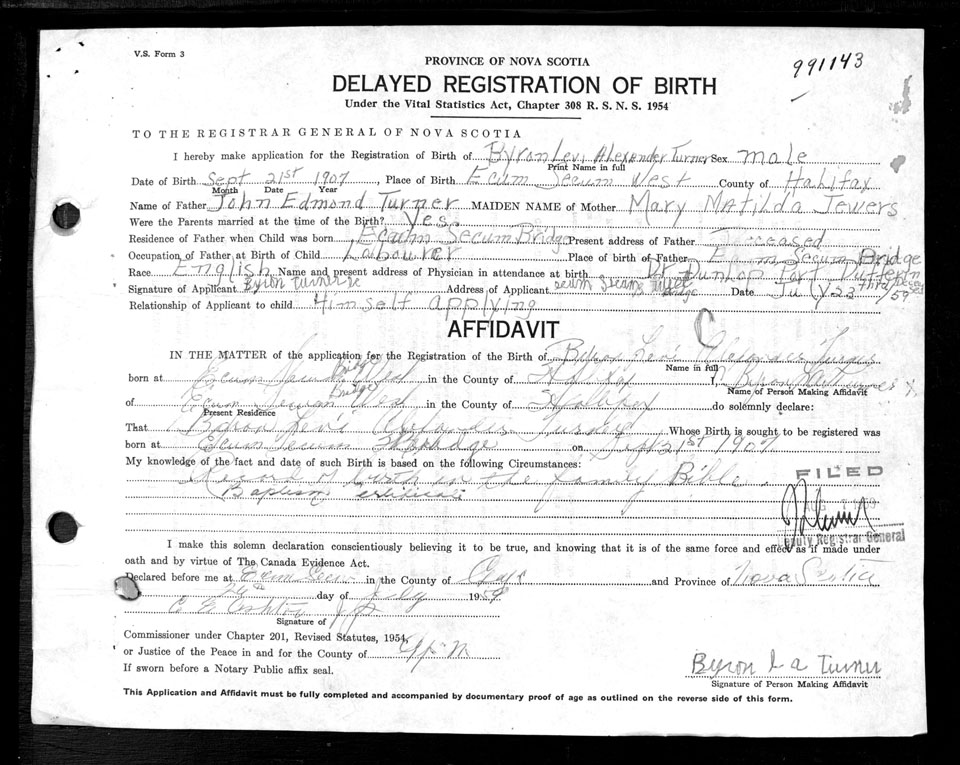 V.S. Form 3
PROVINCE OF NOVA SCOTIA
991143
DELAYED REGISTRATION OF BIRTH
Under the Vital Statistics Act, Chapter 308 R. S. N. S. 1954
TO THE REGISTRAR GENERAL OF NOVA SCOTIA
I hereby make application for the Registration of Birth of Byron Levi Alexander Turner Sex male
Print Name in full
Date of Birth Sept 21st 1907, Place of Birth Ecum Secum West County of Halifax
Month Date Year
Name of Father John Edmond Turner MAIDEN NAME of Mother Mary Matilda Jewers
Were the Parents married at the time of the Birth? Yes
Residence of Father when Child was born Ecum Secum Bridge Present address of Father Deceased
Occupation of Father at Birth of Child Labourer Place of birth of Father Ecum Secum Bridge
Race English Name and present address of Physician in attendance at birth Dr Dunlop Port Dufferin
Signature of Applicant Byron Turner Address of Applicant Secum West Bridge Date July 23 59
Relationship of Applicant to child Himself applying
AFFIDAVIT
IN THE MATTER of the application for the Registration of the Birth of Byron Levi Alexander Turner
Name in full
born at Ecum Secum Bridge West in the County of Halifax I, Byron Turner X
Name of Person Making Affidavit
of Ecum Secum Bridge West in the County of Halifax do solemnly declare:
Present Residence
That Byron Levi Alexander Turner Whose Birth is sought to be registered was
born at Ecum Secum Bridge on Sept 21st 1907
My knowledge of the fact and date of such Birth is based on the following Circumstances:
Record of birth in the family Bible.
Baptism certificate
FILED
Deputy Registrar General
I make this solemn declaration conscientiously believing it to be true, and knowing that it is of the same force and effect as if made under
oath and by virtue of The Canada Evidence Act.
Declared before me at Ecum Secum in the County of and Province of Nova Scotia
day of July 1959
C E Ashton J P
Signature of
Commissioner under Chapter 201, Revised Statutes, 1954,
or Justice of the Peace in and for the County of
If sworn before a Notary Public affix seal.
Byron L a Turner
Signature of Person Making Affidavit
This Application and Affidavit must be fully completed and accompanied by documentary proof of age as outlined on the reverse side of this form.